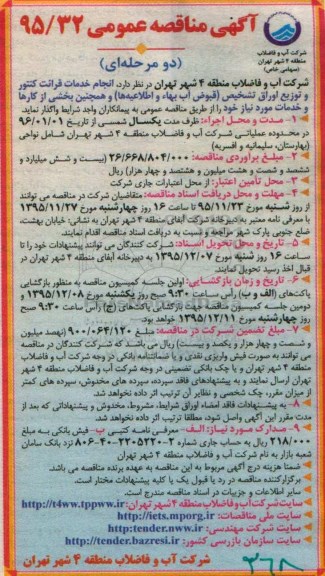 آگهی مناقصه عمومی ۹۵/۳۲
شرکت آب و فاضلاب
منطقه ۴ شهر تهران
(سهامی خاص)
(دو مرحله‌ای)
شرکت آب و فاضلاب منطقه ۴ شهر تهران در نظر دارد، انجام خدمات قرائت کنتور
و توزیع اوراق تشخیص (قبوض آب بهاء و اطلاعیه‌ها) و همچنین بخشی از کارها
و خدمات مورد نیاز خود را از طریق مناقصه عمومی به پیمانکاران واجد شرایط واگذار نماید.
۱- مدت و محل اجراء: ظرف مدت یکسال شمسی از تاریخ ۹۶/۰۱/۰۱
در محدوده عملیاتی شرکت آب و فاضلاب منطقه ۴ شهر تهران شامل نواحی
(بهارستان، سلیمانیه و افسریه)
۲- مبلغ برآوردی مناقصه: ۲۶/۶۶۸/۸۰۴/۰۰۰ (بیست و شش میلیارد و
ششصد و شصت و هشت میلیون و هشتصد و چهار هزار) ریال
۳- محل تأمین اعتبار: از محل اعتبارات جاری شرکت
۴- مهلت و محل دریافت اسناد مناقصه: متقاضیان شرکت در مناقصه می توانند
از روز شنبه مورخ ۱۳۹۵/۱۱/۲۳ تا ساعت ۱۶ روز چهارشنبه مورخ ۱۳۹۵/۱۱/۲۷
با معرفی نامه معتبر به دبیرخانه شرکت آبفای منطقه ۴ شهر تهران به نشانی: خیابان بهشت،
ضلع جنوبی پارک شهر مراجعه و نسبت به دریافت اسناد مناقصه اقدام نمایند.
۵- تاریخ و محل تحویل اسناد: شرکت کنندگان می توانند پیشنهادات خود را تا
ساعت ۱۶ روز شنبه مورخ ۱۳۹۵/۱۲/۰۷ به دبیرخانه آبفای منطقه ۴ تهران در
قبال اخذ رسید تحویل نمایند.
۶- تاریخ و زمان بازگشایی: اولین جلسه کمیسیون مناقصه به منظور بازگشایی
پاکت‌های (الف و ب) رأس ساعت ۹:۳۰ صبح روز یکشنبه مورخ ۱۳۹۵/۱۲/۰۸ و
دومین جلسه کمیسیون مناقصه جهت بازگشایی پاکت‌های (ج) رأس ساعت ۹:۳۰ صبح
روز چهارشنبه مورخ ۱۳۹۵/۱۲/۱۱ خواهد بود.
۷- مبلغ تضمین شرکت در مناقصه: مبلغ ۹۰۰/۰۶۴/۱۲۰ (نهصد میلیون
و شصت و چهار هزار و یکصد و بیست) ریال می باشد که شرکت کنندگان در مناقصه
می توانند به صورت فیش واریزی نقدی و یا ضمانتنامه بانکی در وجه شرکت آب و فاضلاب
منطقه ۴ شهر تهران و یا چک بانکی تضمینی در وجه شرکت آب و فاضلاب منطقه ۴ شهر
تهران ارسال نمایند و به پیشنهادهای فاقد سپرده، سپرده های مخدوش، سپرده های کمتر
از میزان مقرر، چک شخصی و نظایر آن ترتیب اثر داده نخواهد شد.
۸- به پیشنهادات فاقد امضاء اوراق شرایط، مشروط، مخدوش و پیشنهاداتی که بعد از
مدت مقرر این آگهی واصل شود، مطلقا ترتیب اثر داده نخواهد شد.
۹- مدارک مورد نیاز: الف- معرفی نامه کتبی ب- فیش بانکی به مبلغ
۲۱۸/۰۰۰ ریال به حساب جاری شماره ۲-۲۲۰۵۲۲۰-۴۰-۸۰۶ نزد بانک سامان
شعبه بازار به نام شرکت آب و فاضلاب منطقه ۴ شهر تهران
ضمنا هزینه درج آگهی مربوط به این مناقصه به عهده برنده مناقصه می باشد.
برگزارکننده مناقصه در رد یا قبول یک یا کلیه پیشنهادات مختار است.
سایر اطلاعات و جزییات در اسناد مناقصه مندرج است.
سایت شرکت آب و فاضلاب منطقه ۴ شهر تهران: http://t4ww.tppww.ir
سایت ملی مناقصات: http://iets.mporg.ir
سایت شرکت مهندسی: http:tender.nww.ir
سایت سازمان بازرسی کشور: http://tender.bazresi.ir
شرکت آب و فاضلاب منطقه ۴ شهر تهران